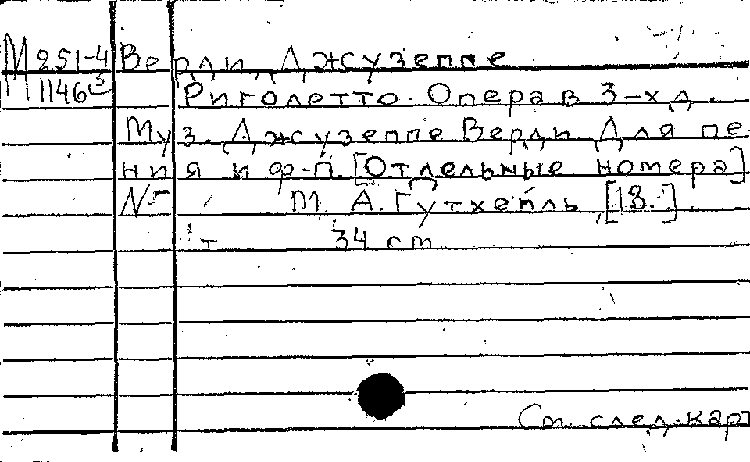 М 251-4 Верди, Джузеппе
М 1146 Риголетто. Опера в 3-х д.
Муз. Джузеппе Верди. Для пе
ния и ф-п. [Отдельные номера]
М. А. Гутхейль, [18. ].
т 34 cm
См. след. карт